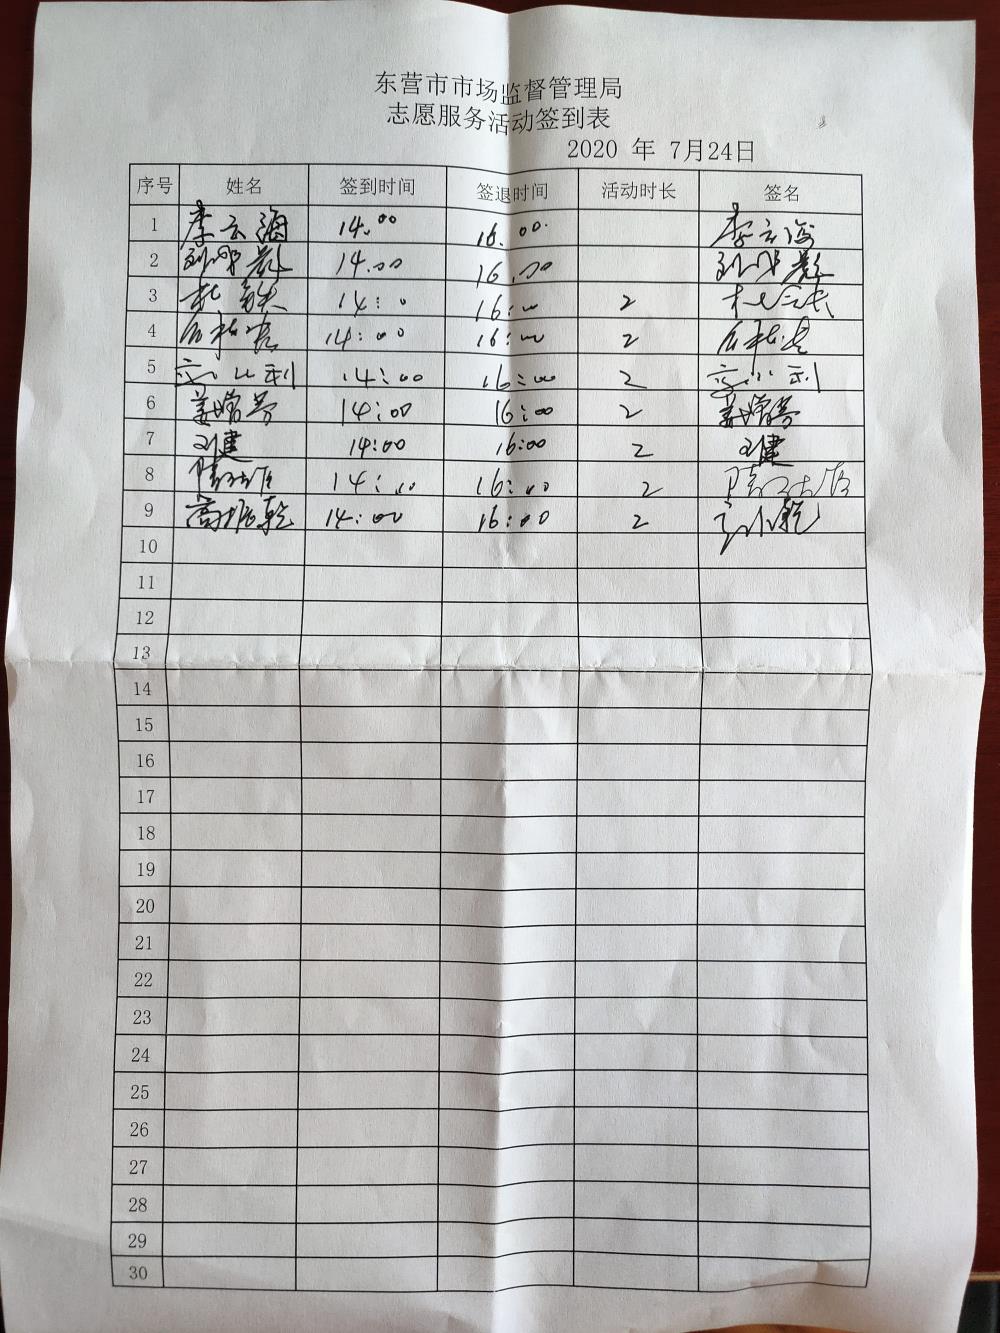 东营市市场监督管理局
志愿服务活动签到表
2020 年 7月24日
序号 姓名 签到时间 签退时间 活动时长 签名
1 李云海 14.00 16.00. 李云海
2 14.00 16.00
3 14:0 16:00 2
4 14:00 16:00 2
5 14:00 16:00 2
6 14:00 16:00 2
7 王健 14:00 16:00 2 王健
8 14:00 16:00 2
9 高振乾 14:00 16:00 2
10
11
12
13
14
15
16
17
18
19
20
21
22
23
24
25
26
27
28
29
30